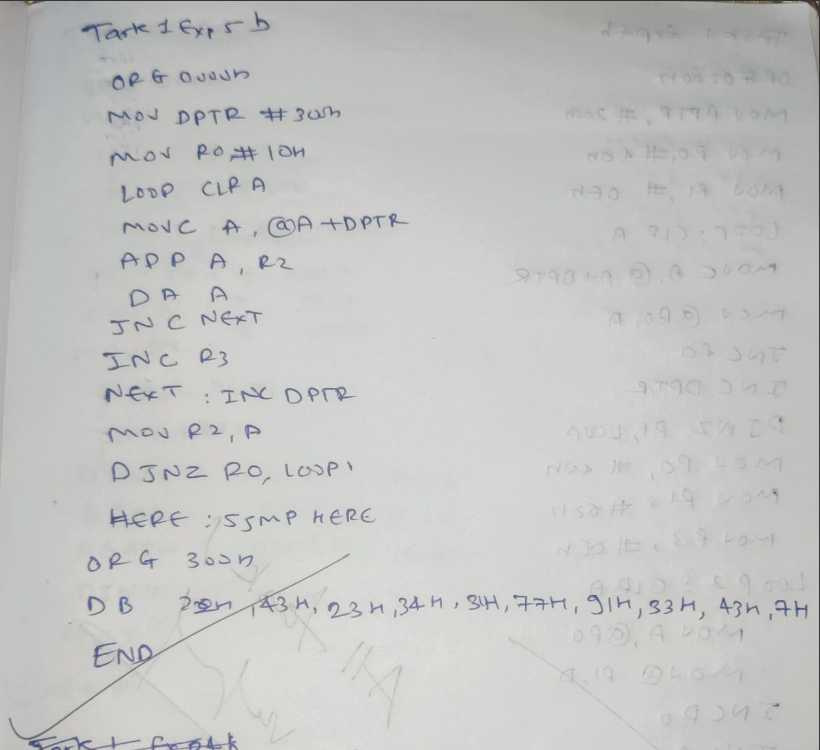 Task 1 Exp 5 b
ORG 0000h
MOV DPTR #300h
MOV R0,#10H
LOOP CLR A
MOVC A, @A+DPTR
ADD A, R2
DA A
JNC NEXT
INC R3
NEXT : INC DPTR
MOV R2, A
DJNZ R0, LOOP1
HERE : SJMP HERE
ORG 300h
DB ,43H, 23H, 34H, 31H, 77H, 91H, 33H, 43H, 7H
END